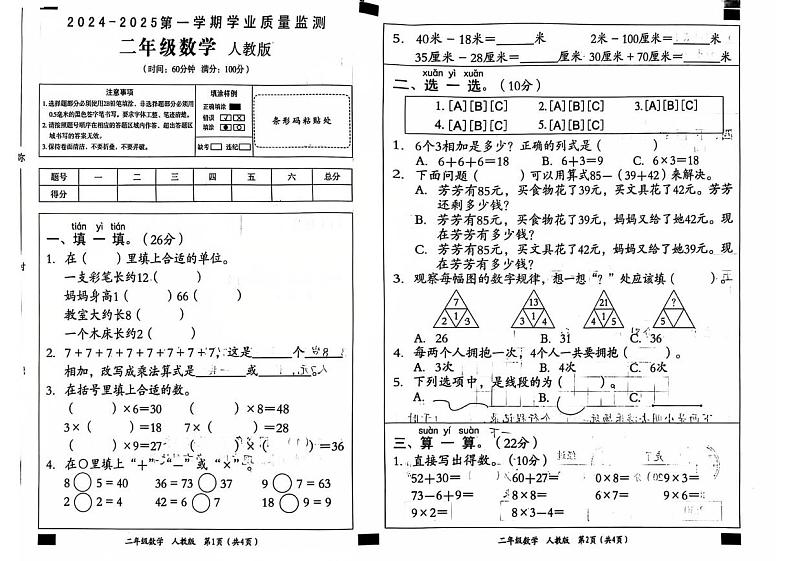 2024-2025第一学期学业质量监测
二年级数学 人教版
(时间:60分钟 满分:100分)
注意事项
1.选择题部分必须使用2B铅笔填涂,非选择题部分必须用
0.5毫米的黑色签字笔书写。要求字体工整,笔迹清楚。
2.请按照题号顺序在相应的答题区域内作答,超出答题区
域书写的答案无效。
3.保持卷面清洁,不要折叠,不要弄破。
填涂样例
正确填涂
错误
填涂
缺考 违纪
条形码粘贴处
题号 一 二 三 四 五 六 总分
得分
tián yì tián
一、填一填。(26分)
1. 在( )里填上合适的单位。
一支彩笔长约12( )
妈妈身高1( )66( )
教室大约长8( )
一个木床长约2( )
2. 7+7+7+7+7+7+7+7,这是 个
相加,改写成乘法算式是 或
3. 在括号里填上合适的数。
( )×6=30 ( )×8=48
3×( )=18 7×( )=28
( )×9=27 ( )×( )=36
4. 在○里填上“+”“-”或“×”。
8○5=40 36=73○37 9○7=63
2○2=4 42=6○7 18○9=9
二年级数学 人教版 第1页(共4页)
5. 40米-18米= 米 2米-100厘米= 米
35厘米-28厘米= 厘米 30厘米+70厘米= 米
xuǎn yì xuǎn
二、选一选。(10分)
1.[A][B][C] 2.[A][B][C] 3.[A][B][C]
4.[A][B][C] 5.[A][B][C]
1. 6个3相加是多少?正确的列式是( )
A. 6+6+6=18 B. 6+3=9 C. 6×3=18
2. 下面问题( )可以用算式85-(39+42)来解决。
A. 芳芳有85元,买食物花了39元,买文具花了42元。芳芳
还剩多少钱?
B. 芳芳有85元,买食物花了39元,妈妈又给了她42元。现
在芳芳有多少钱?
C. 芳芳有85元,买文具花了42元,妈妈又给了她39元。现
在芳芳有多少钱?
3. 观察每幅图的数字规律,想一想“?”处应该填( )。
7 13 21 ?
2 1 3 3 1 4 4 1 5 5 1 6
A. 26 B. 31 C. 36
4. 每两个人拥抱一次,4个人一共要拥抱( )。
A. 3次 B. 4次 C. 6次
5. 下列选项中,是线段的为( )。
A. B. C.
suàn yí suàn
三、算一算。(22分)
1. 直接写出得数。(10分)
52+30= 60+27= 0×8= 9×3=
73-6+9= 8×8= 6×7= 9×6=
9×2= 8×3-4=
二年级数学 人教版 第2页(共4页)